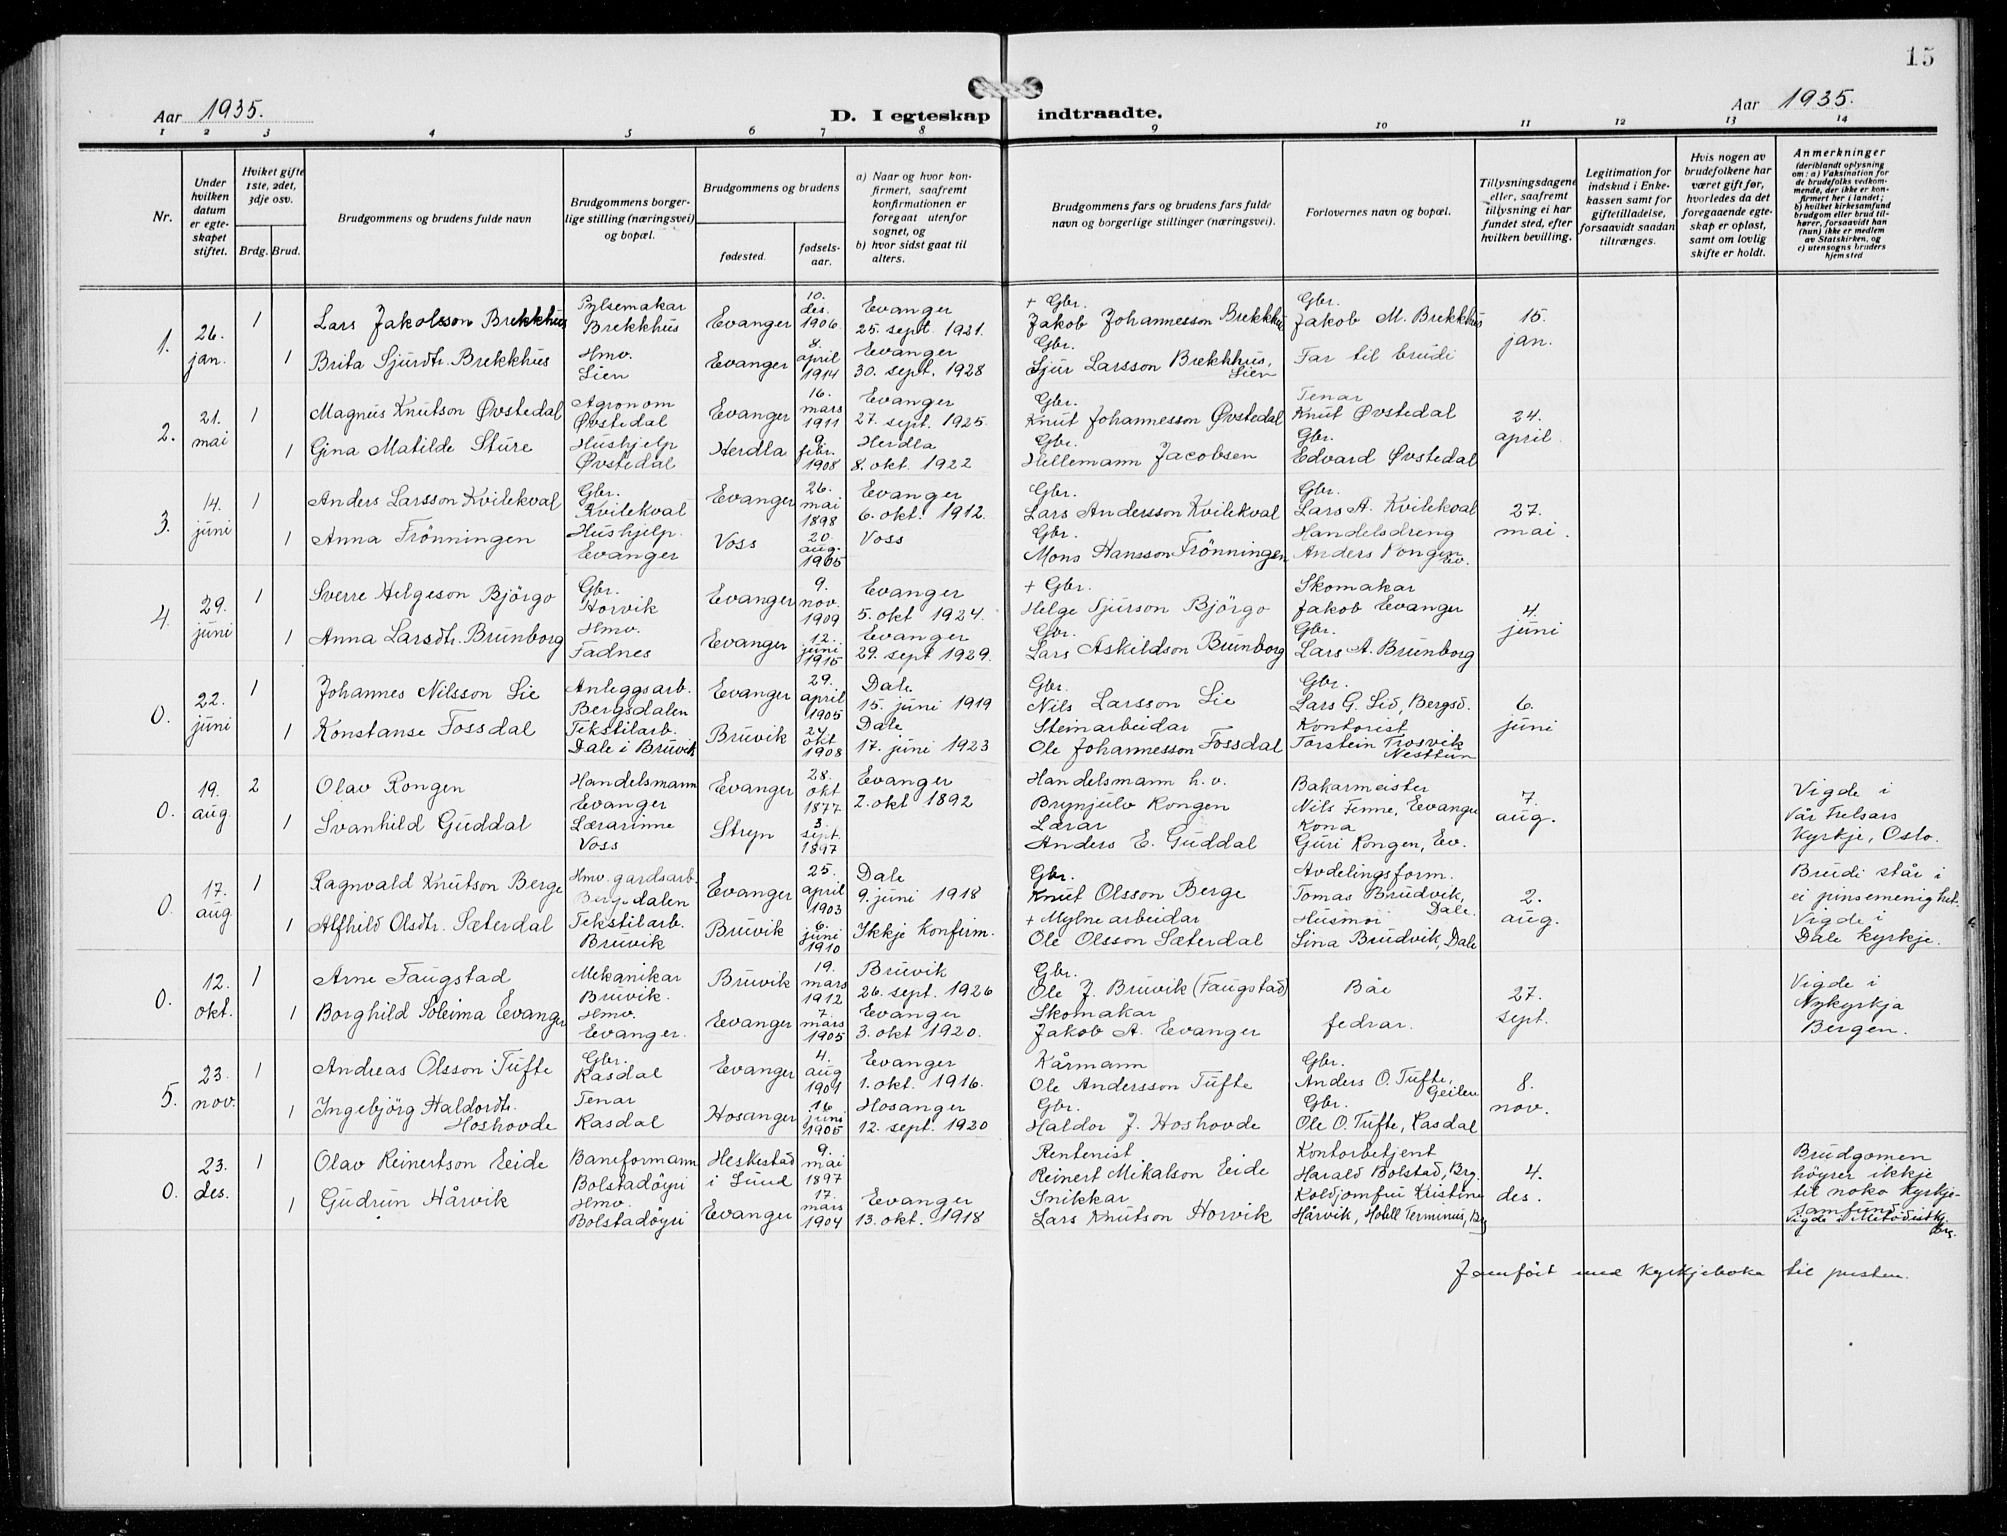 15
Aar 1935.
D. I egteskap indtraadte.
Aar 1935.
1 2 3 4 5 6 7 8 9 10 11 12 13 14
Nr.
Under hvilken datum er egte-skapet stiftet.
Hviket gifte 1ste, 2det, 3dje osv.
Brdg. Brud.
Brudgommens og brudens fulde navn
Brudgommens borger-lige stilling (næringsvei) og bopæl.
Brudgommens og brudens
fødested.
fødsels-aar.
a) Naar og hvor kon-firmert, saafremt konfirmationen er foregaat utenfor sognet, og
b) hvor sidst gaat til alters.
Brudgommens fars og brudens fars fulde navn og borgerlige stillinger (næringsvei).
Forlovernes navn og bopæl.
Tillysningsdagene eller, saafremt tillysning ei har fundet sted, efter hvilken bevilling.
Legitimation for indskud i Enke-kassen samt for giftetilladelse, forsaavidt saadan tiltrænges.
Hvis nogen av brudefolkene har været gift før, hvorledes da det foregaaende egte-skap er opløst, samt om lovlig skifte er holdt.
Anmerkninger
(deriblandt oplysning om: a) Vaksination for de brudefolks vedkom-mende, der ikke er kon-firmert her i landet; b) hvilket kirkesamfund brudgom eller brud til-hører, forsaavidt han (hun) ikke er medlem av Statskirken, og c) utensogns bruders hjemsted
1. 26. jan. 1 Lars Jakobsson Brekkhus Pylsemakar Brekkhus Evanger 10. des. 1906. Evanger 25. sept. 1921. + Gbr. Jakob Johannesson Brekkhus Gbr. Jakob M. Brekkhus 15. jan.
1 Brita Sjurdtr. Brekkhus Hmv. Lien Evanger 8. april 1914 Evanger 30. sept. 1928 Gbr. Sjur Larsson Brekkhus, Lien Far til brudi
2. 21. mai 1 Magnus Knutson Øvstedal Agronom Øvstedal Evanger 16. mars 1911 Evanger 27. sept. 1925. Gbr. Knut Johannesson Øvstedal Tenar Knut Øvstedal 24. april.
1 Gina Matilde Sture Hushjelp Øvstedal Herdla 9. febr. 1908 Herdla 8. okt. 1922 Gbr. Hellemann Jacobsen Gbr. Edvard Øvstedal
3. 14. juni 1 Anders Larsson Kvilekval Gbr. Kvilekval Evanger 26. mai 1898 Evanger 6. okt. 1912. Gbr. Lars Andersson Kvilekval Gbr. Lars A. Kvilekval 27. mai.
1 Anna Trönningen Hushjelp. Evanger Voss 20. aug. 1905 Voss Gbr. Mons Hansson Trönningen Handelsdreng Anders Rongen Ev.
4. 29. juni 1 Sverre Helgeson Björgo Gbr. Horvik Evanger 9. nov. 1909 Evanger 5. okt 1924. + Gbr. Helge Sjurson Björgo Skomakar Jakob Evanger 4. juni
1 Anna Larsdtr. Brunborg Hmv. Fadnes Evanger 12. juni 1915 Evanger 29. sept 1929. Gbr. Lars Askildson Brunborg Gbr. Lars A. Brunborg
0. 22. juni 1 Johannes Nilsson Lie Anleggsarb. Bergsdalen Evanger 29. april 1905 Dale 15. juni 1919 Gbr. Nils Larsson Lie Gbr. Lars G. Lid, Bergsd. 6. juni
1 Konstanse Fossdal Tekstilarb. Dale i Bruvik Bruvik 24. okt 1908 Dale 17. juni 1923 Steinarbeidar Ole Johannesson Fossdal Kontorist Torstein Trosvik Nesttun
0. 19. aug. 2 Olav Rongen Handelsmann Evanger Evanger 28. okt 1877 Evanger 2. okt 1892 Handelsmann h. v. Brynjulv Rongen Bakarmeister Nils Fenne, Evanger 7. aug. Vigde i Vår Frelsars Kyrkje, Oslo.
1 Svanhild Guddal Lærarinne Voss Stryn 3. sept. 1897 Lærar Anders E. Guddal Kona Guri Rongen, Ev.
0. 17. aug 1 Ragnvald Knutson Berge Hmv. gardsarb. Bergsdalen Evanger 25. april 1903 Dale 9. juni 1918 Gbr. Knut Olsson Berge Avdelingsform. Tomas Brudvik, Dale. 2. aug. Brudi står i ei pinsemenighet.
1 Alfhild Olsdtr. Sæterdal Tekstilarb. Bruvik Bruvik 6. juni 1910 Ikkje konfirm. + Mylnearbeidar Ole Olsson Sæterdal Husmoi Lina Brudvik, Dale Vigde i Dale kyrkje.
0. 12. okt. 1 Arne Faugstad Mekanikar Bruvik. Bruvik 19. mars 1912 Bruvik 26. sept. 1926 Gbr. Ole J. Bruvik (Faugstad) Båe 27. sept. Vigde i Nykyrkja Bergen.
1 Borghild Soleima Evanger Hmv. Evanger. Evanger 7. mars 1905 Evanger 3. okt 1920. Skomakar Jakob A. Evanger fedrar.
5. 23. nov. 1 Andreas Olsson Tufte Gbr. Rasdal Evanger 4. aug 1901 Evanger 1. okt. 1916. Kårmann Ole Andersson Tufte Gbr. Anders O. Tufte, Geilen 8. nov.
1 Ingebjörg Haldordtr. Hoshovde Tenar Rasdal Hosanger 16 juni 1905 Hosanger 12. sept. 1920 Gbr. Haldor J. Hoshovde Gbr. Ole O. Tufte, Rasdal
0. 23. des. 1 Olav Reinertson Eide Baneformann Bolstadöyri Heskestad i Lund 9. mai 1897 Rentenist Reinert Mikalson Eide Kontorbetjent Harald Bolstad, Brg. 4. des. Brudgomen höyrer ikkje til noko Kyrkje-samfund
1 Gudrun Hårvik Hmv. Bolstadöyri Evanger 17. mars 1904 Evanger 13. okt. 1918 Snikkar Lars Knutson Horvik Koldjomfru Kristine Hårvik, Hotell Terminus, Brg Vigde i Metodistkj. Brg.
Jamfört med kyrkjeboka til presten.